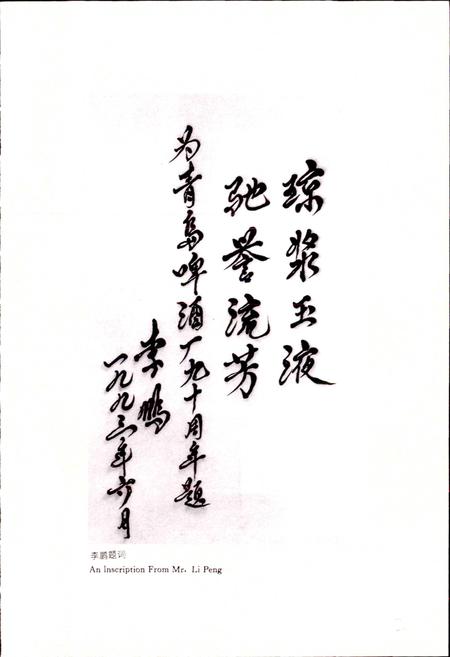 琼浆玉液
驰誉流芳
为青岛啤酒厂九十周年题
李鹏
一九九三年六月
李鹏题词
An Inscription From Mr. Li Peng